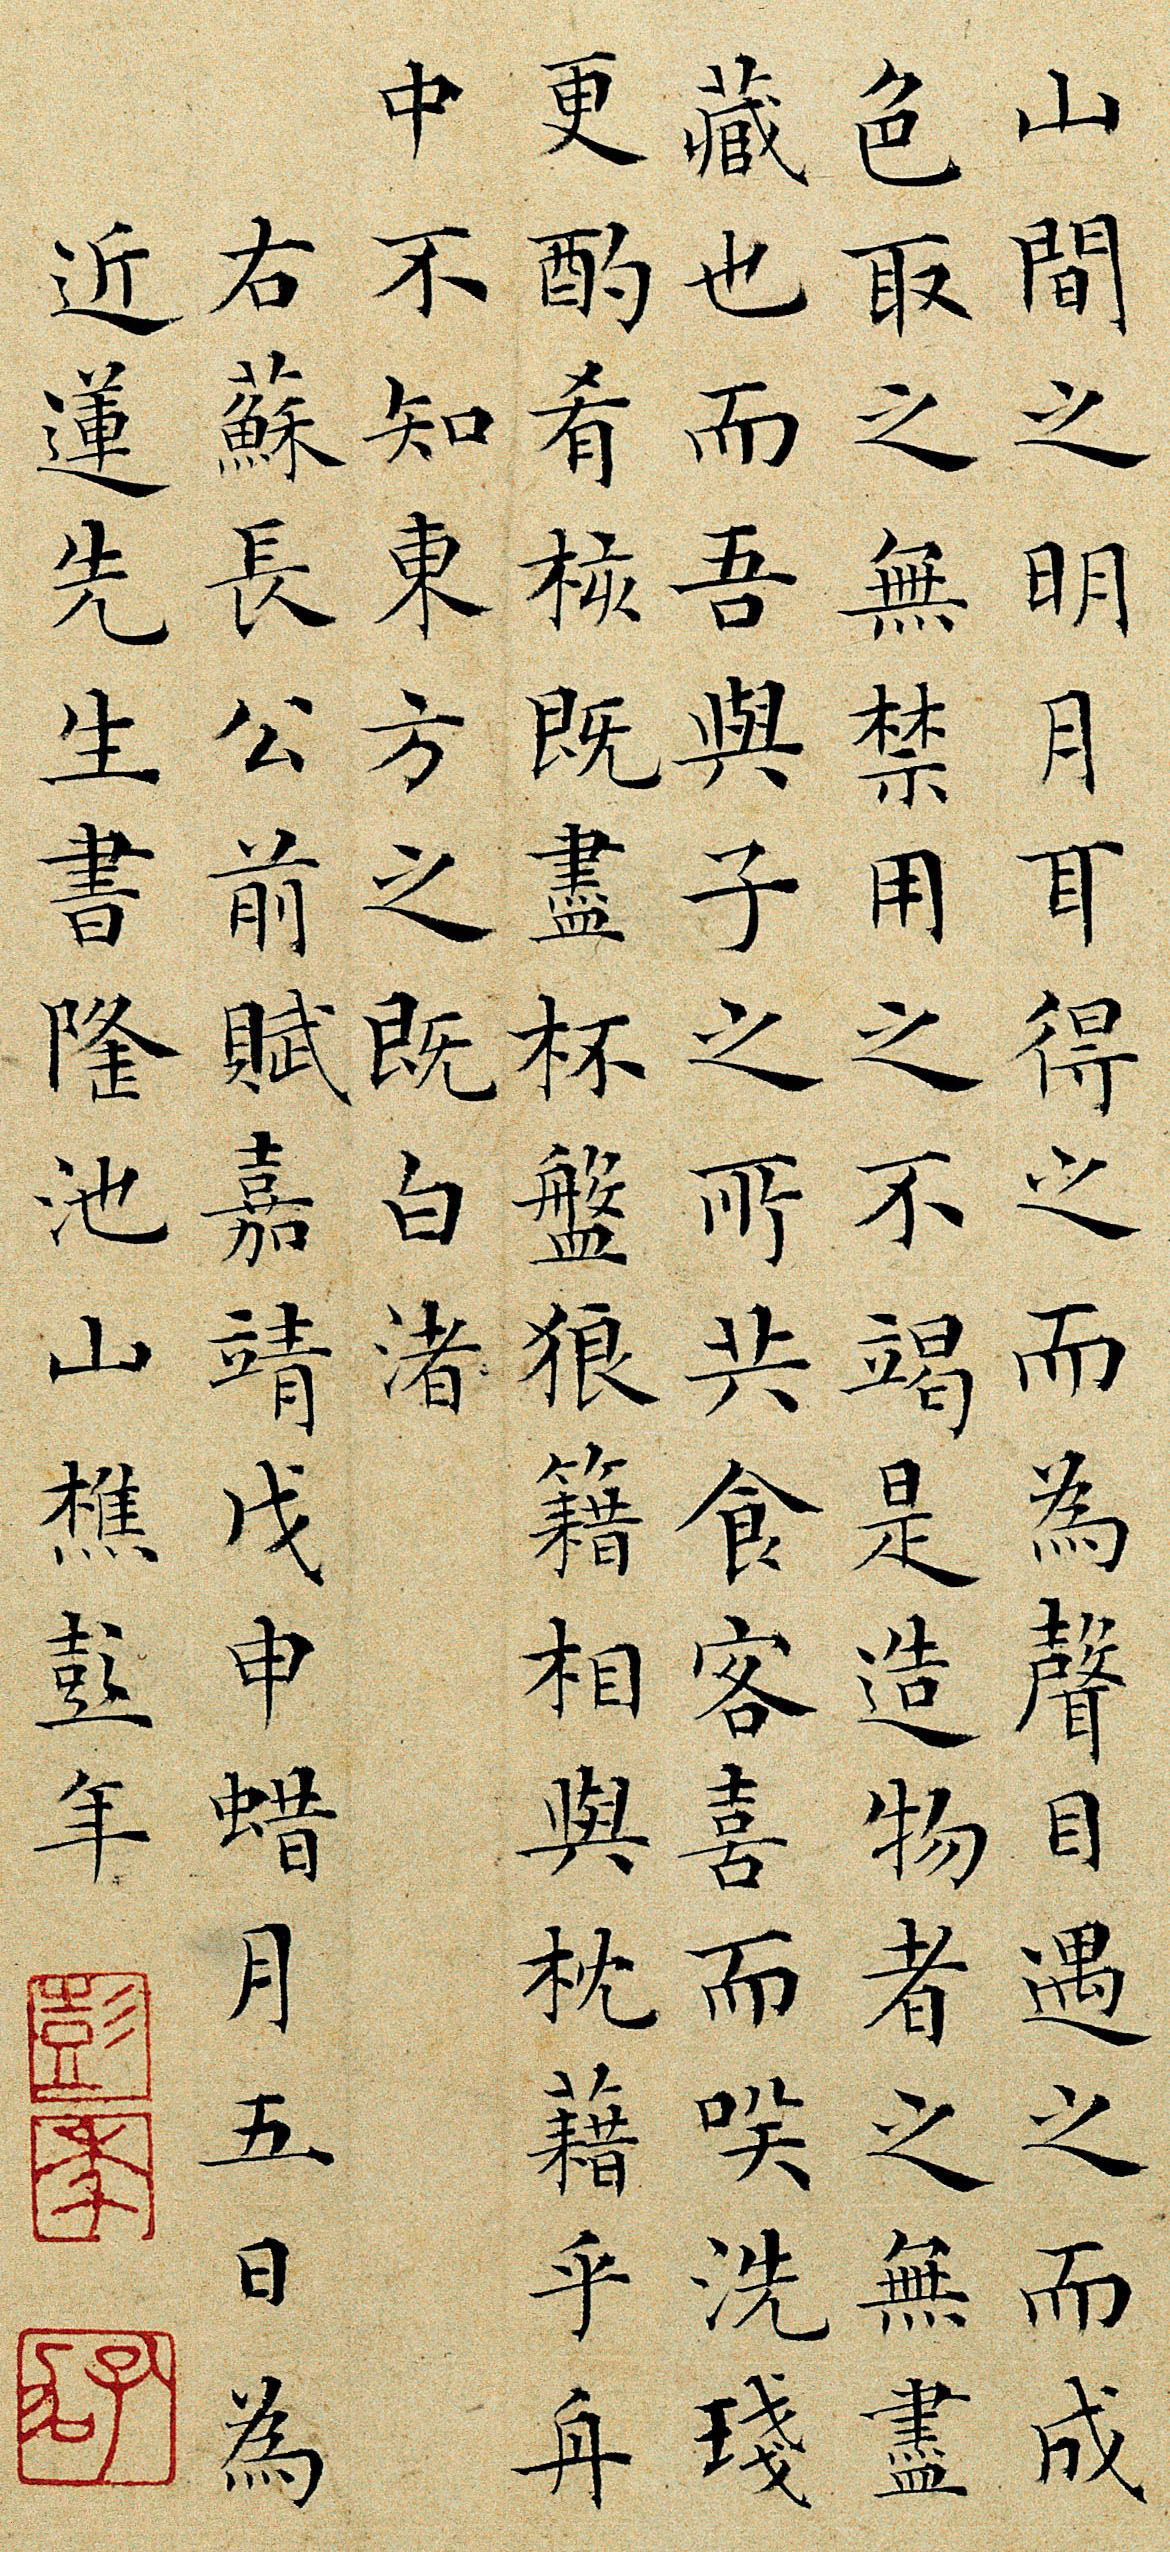 山間之明月耳得之而為聲目遇之而成
色取之無禁用之不竭是造物者之無盡
藏也而吾與子之所共食客喜而咲洗琖
更酌肴核既盡杯盤狼籍相與枕藉乎舟
中不知東方之既白渚
右蘇長公前賦嘉靖戊申蜡月五日為
近蓮先生書隆池山樵彭年
彭年